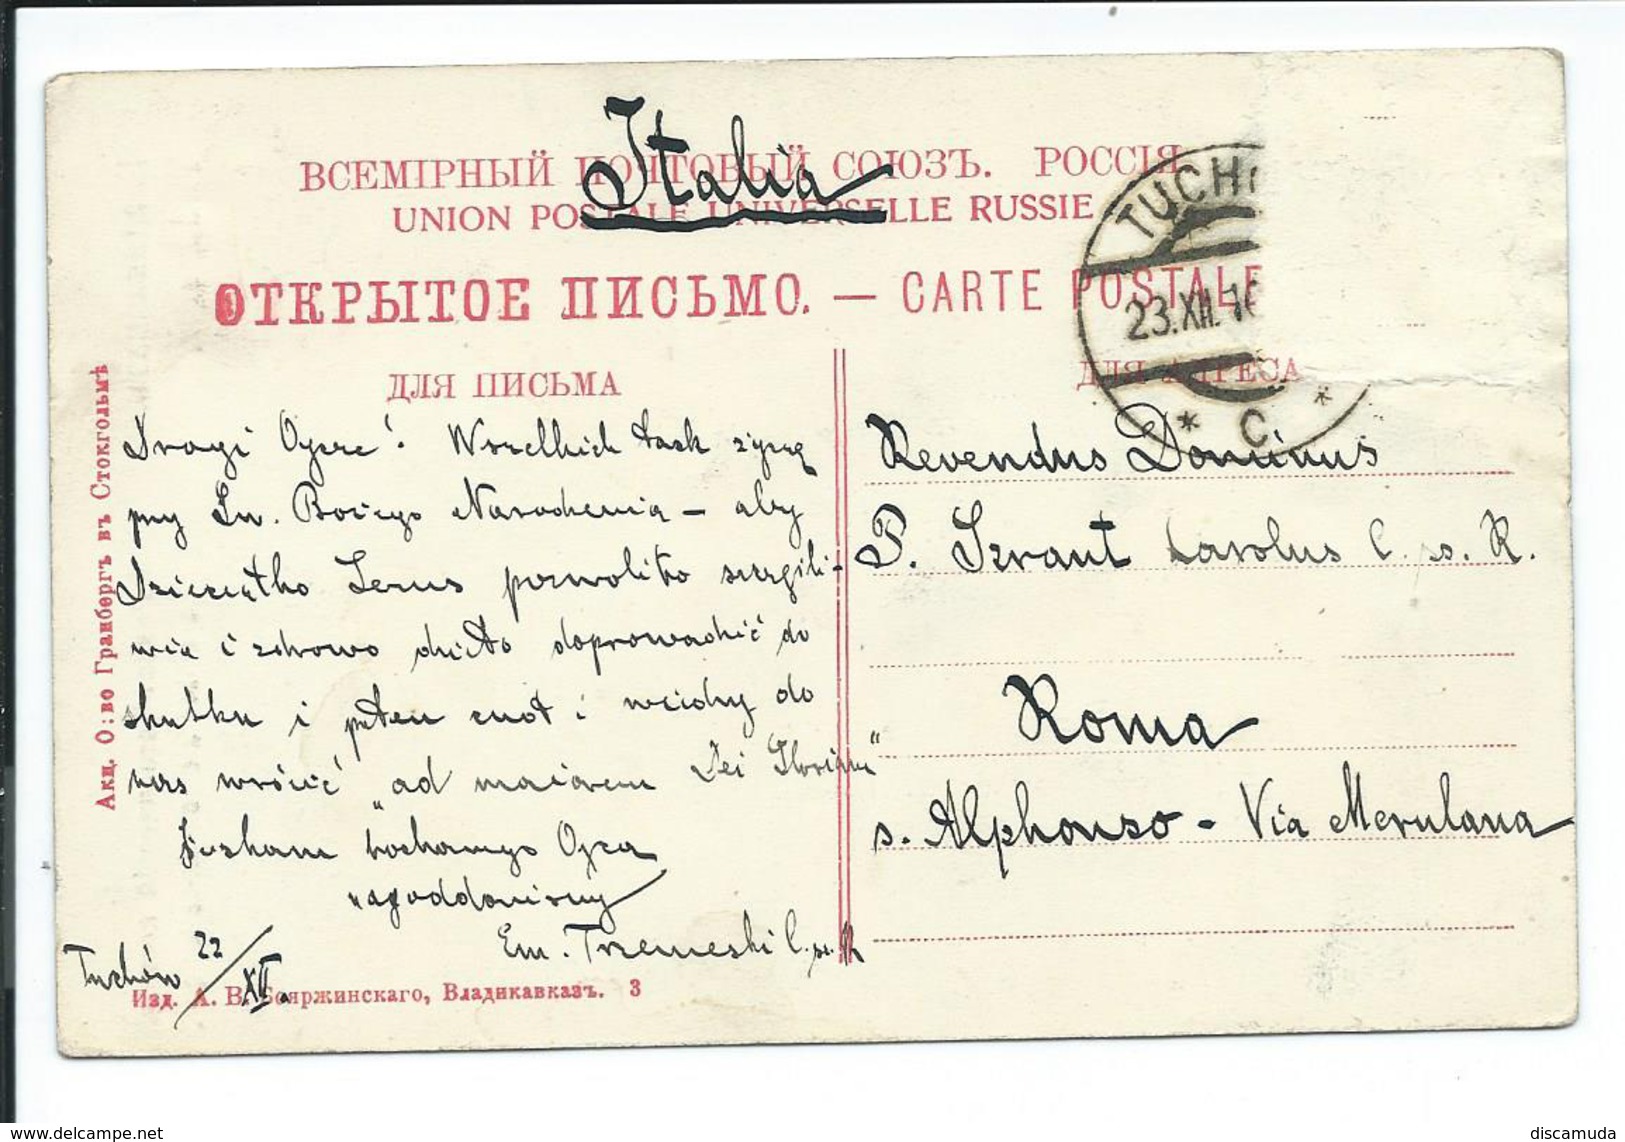 Italia
ВСЕМІРНЫЙ ПОЧТОВЫЙ СОЮЗЪ. РОССІЯ
UNION POSTALE UNIVERSELLE RUSSIE
ОТКРЫТОЕ ПИСЬМО. — CARTE POSTALE
TUCH
23.XII.
* C. *
ДЛЯ ПИСЬМА
Drogi Ojcze! Wszelkich łask życzę
przy Św. Bożego Narodzenia – aby
Dzieciątko Jezus pozwoliło szczęśli-
wie i zdrowo dzieło doprowadzić do
skutku i pełen cnót i wiedzy do
nas wrócić „ad maiorem Dei Gloriam"
Ściskam kochanego Ojca
Em. Trzemeski C.ss.R
Tuchów 22/XII.
ДЛЯ АДРЕСА
Revendus Dominus
P. Szrant Carolus C. ss. R.
Roma
s. Alphonso - Via Merulana
Акц. О:во Гранбергъ въ Стокгольмѣ
Изд. А. В. Бояржинскаго, Владикавказъ. 3
www.delcampe.net
discamuda